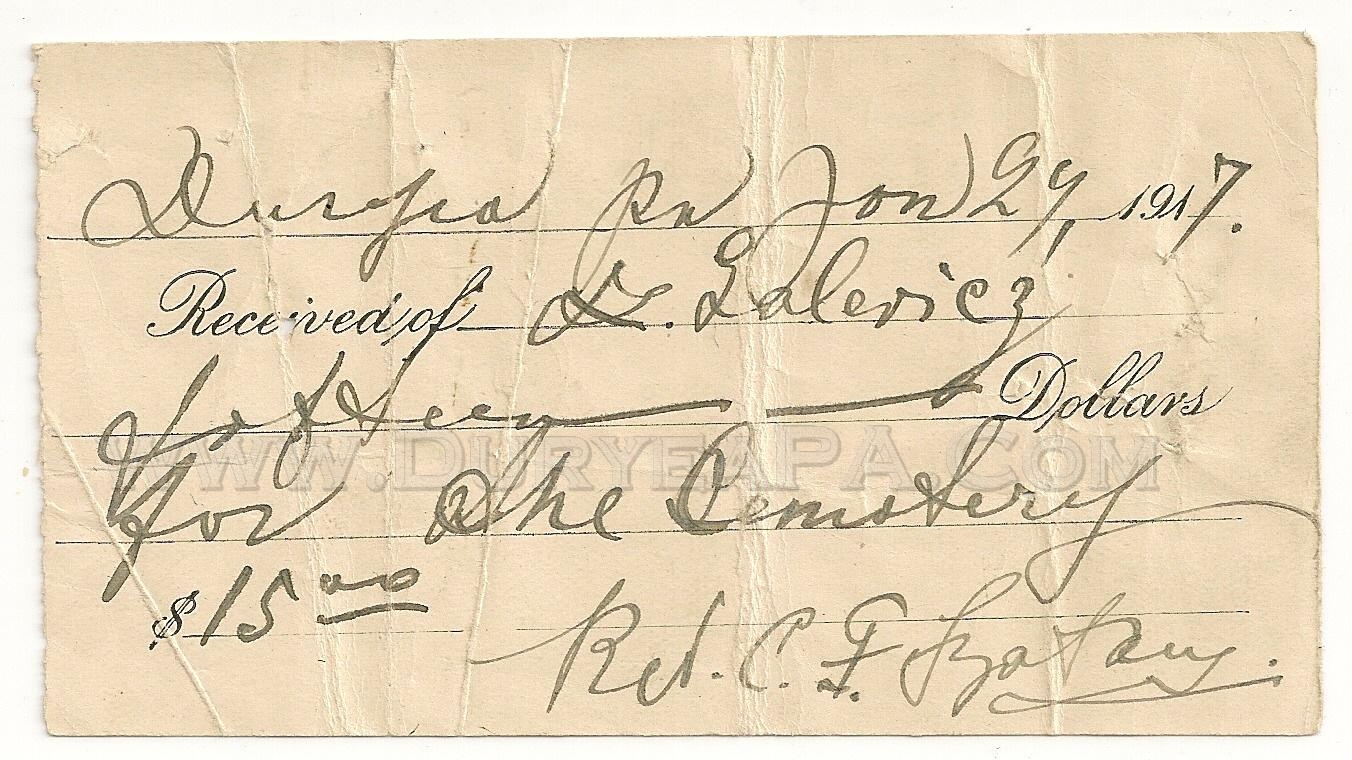 Duryea Pa Jan 29, 1917.
Received of
Dollars
WWW.DURYEAPA.COM
for the Cemetery
$15 00
Rev. C. F.